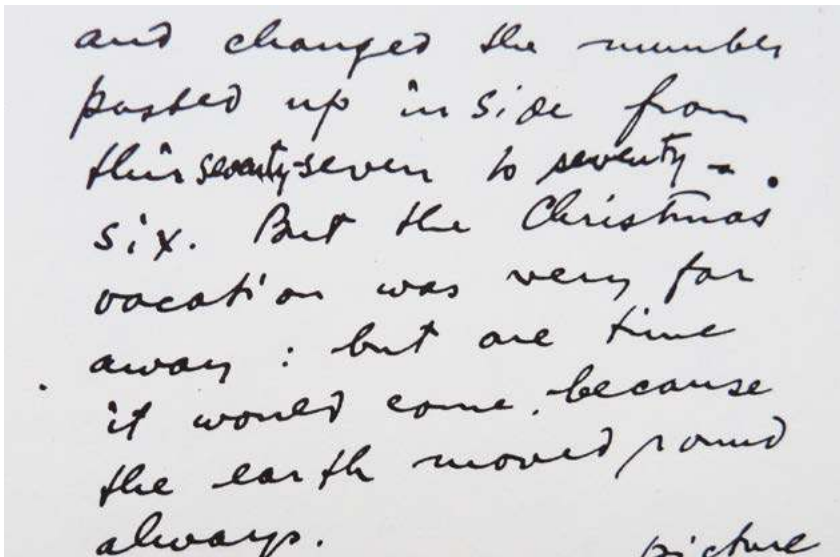 and changed the number
pasted up inside from
thir seventy-seven to seventy-
six. But the Christmas
vacation was very far
away: but one time
it would come, because
the earth moved round
always.
picture